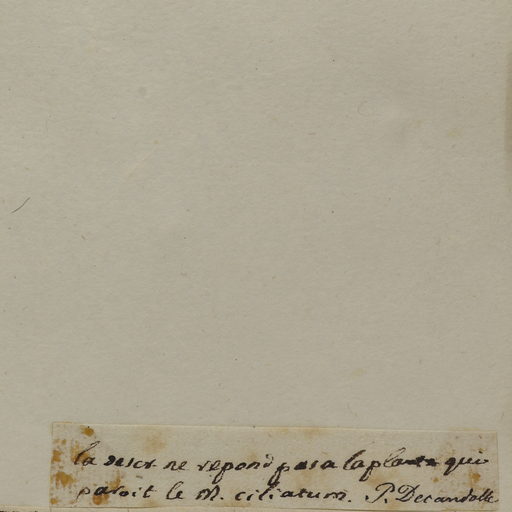 la descr. ne repond pas a la plante qui
paroit le M. ciliatum. P. Decandolle